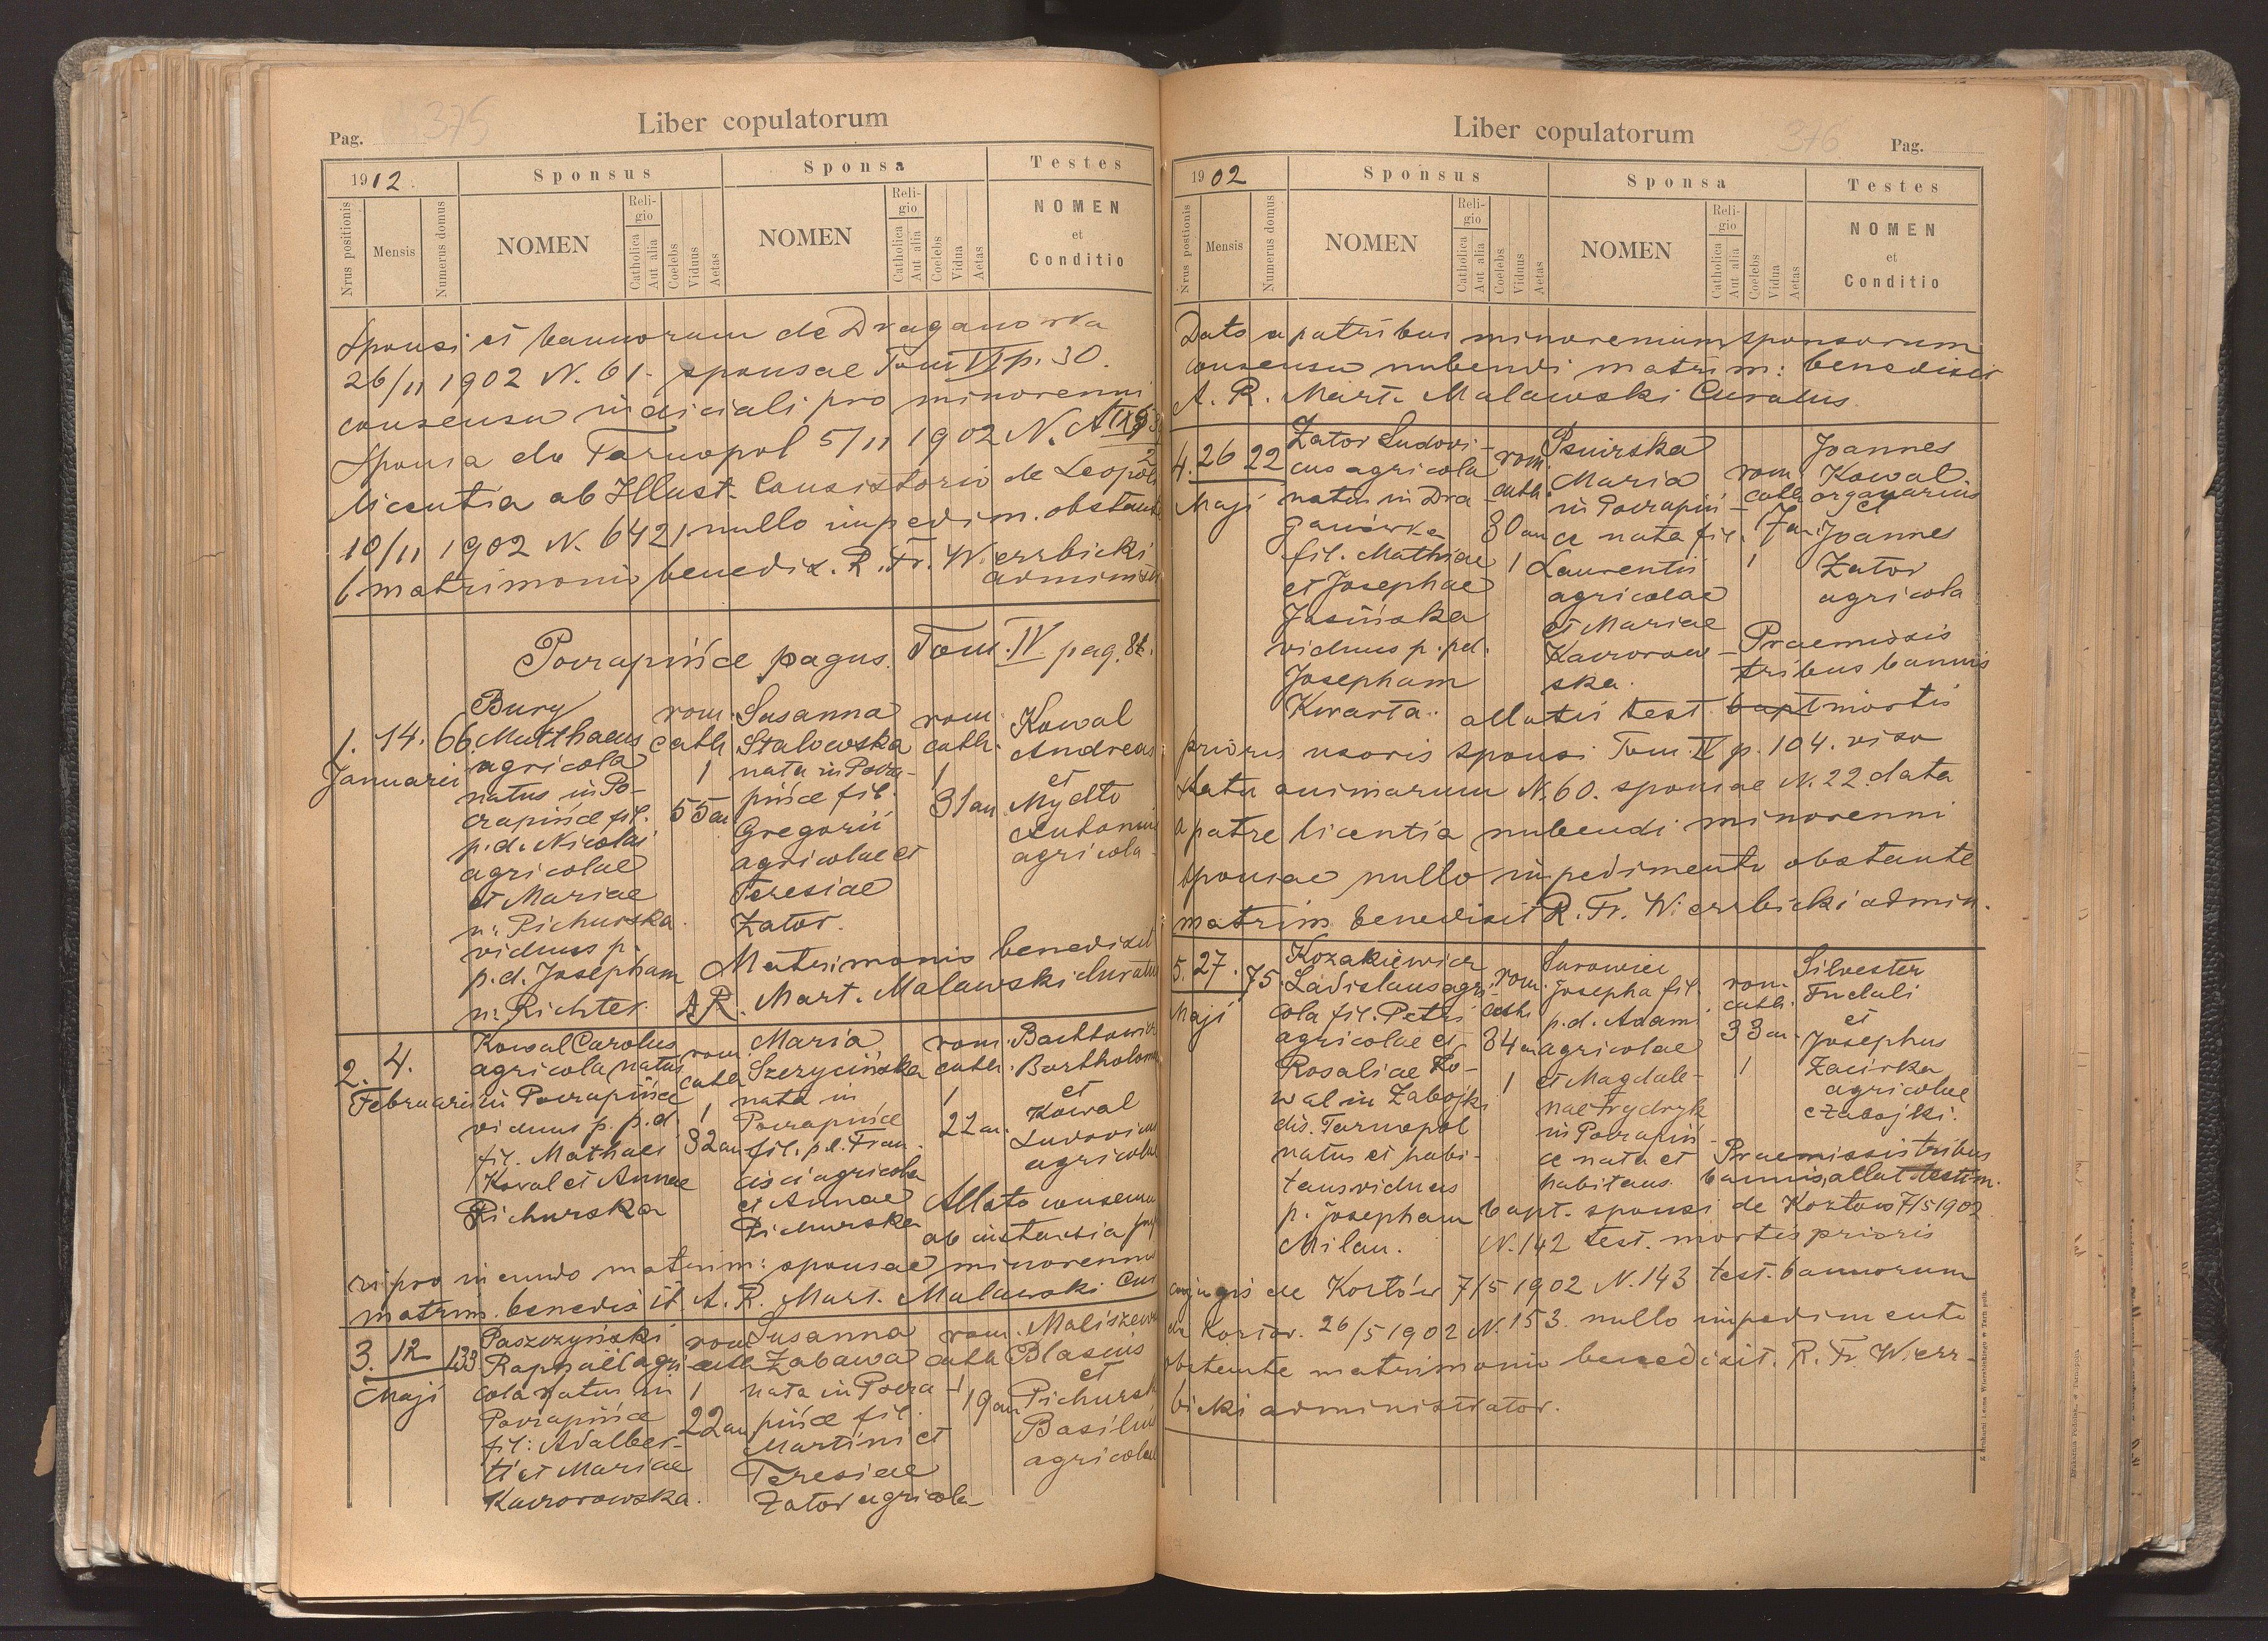 375
Liber copulatorum
Pag.
1912.
Sponsus
Sponsa
Testes
Nrus positionis
Mensis
Numerus domus
NOMEN
Religio
Catholica
Aut alia
Coelebs
Viduus
Aetas
NOMEN
Religio
Catholica
Aut alia
Coelebs
Vidua
Aetas
NOMEN
et
Conditio
Sponsi et bannorum de Draganówka
26/11 1902 N. 61. sponsae Tom VI p. 30.
consensu iudiciali pro minorenni
Sponsa de Tarnopol 5/11 1902 N. A IX
licentia ab Illust. Consistorio de Leopol
10/11 1902 N. 6421 nullo impedim. obstante
matrimonio benedix. R. Fr. Wierzbicki
administr
Poczapińce pagus. Tom. IV. pag. 88.
1. 14. 66.
Januarii
Bury
Matthaeus
agricola
natus in Po-
czapińce fil.
p.d. Nicolai
agricolae
et Mariae
n. Pichurska
viduus p.
p.d. Josepham
n. Richter.
rom.
cath
1
55 an
Susanna
Stalowska
nata in Pocza-
pińce fil.
Gregorii
agricolae et
Teresiae
Zator.
rom.
cath.
1
31 an
Kowal
Andreas
et
Mydło
Antonius
agricola
Matrimonio benedixit
A.R. Mart. Malawski curatus
2. 4.
Februarii
Kowal Carolus
agricola natus
in Poczapińce
viduus p. p.d.
fil. Mathaei
Koval et Annae
Pichurska
rom.
cath
1
32 an
Maria
Szerycińska
nata in
Poczapińce
fil. p.d. Fran-
cisci agricola
et Annae
Pichurska
rom.
cath.
1
22 an.
Bachtowicz
Bartholom
et
Kowal
Ludovicus
agricolae
Allato consensu
ab instantia
ri pro ineundo matrim: sponsae minorennis
matrim. benedixit A. R. Mart. Malawski Cur
3. 12 133
Maji
Paszczyński
Raphaël agri-
cola natus in
Poczapińce
fil: Adalber-
ti et Mariae
Kaczorowska.
rom
cath
1
22 an
Susanna
Zabawa
nata in Pocza-
pińce fil.
Martini et
Teresiae
Zator agricola
rom.
cath
1
19 an
Maliszewski
Blasius
et
Pichursk
Basilius
agricolae
Liber copulatorum
376
Pag.
1902
Sponsus
Sponsa
Testes
Nrus postionis
Mensis
Numerus domus
NOMEN
Religio
Catholica
Aut alia
Coelebs
Viduus
Aetas
NOMEN
Religio
Catholica
Aut alia
Coelebs
Vidua
Aetas
NOMEN
et
Conditio
Dato a patribus minorenium sponsorum
consensu nubendi matrim: benedixit
A. R. Mart. Malawski Curatus.
4. 26 22
Maji
Zator Ludovi-
cus agricola
natus in Dra-
ganówka
fil. Mathiae
et Josephae
Jasińska
viduus p. pd.
Josepham
Kwarta.
rom.
cath.
30 an
1
Psuirska
Maria
in Poczapiń-
ce nata fil.
Laurentii
agricolae
et Mariae
Kaczorow-
ska.
rom
cath
17 an
1
Joannes
Kowal
organarius
et
Joannes
Zator
agricola
Praemissis
tribus bannis
allatis test. bapt mortis
prioris uxoris sponsi Tom. IV p. 104. viso
statu animarum N. 60. sponsae N. 22. data
a patre licentia nubendi minorenni
sponsae nullo impedimento obstante
matrim. benedixit R. Fr. Wierzbicki admin.
5. 27. 75.
Maji
Kozakiewicz
Ladislaus agri-
cola fil. Petri
agricolae et
Rosaliae Ko-
wal in Zabojki
dis. Tarnopol
natus et habi-
tans viduus
p. Josepham
Milan.
rom.
cath
34 an
1
Surowiec
Josepha fil.
p.d. Adami
agricolae
et Magdale-
nae Frydryk
in Poczapiń-
ce nata et
habitans.
rom.
cath.
33 an.
1
Silvester
Fudali
et
Josephus
Zacirka
agricolae
e Zabojki.
Praemissis tribus
bannis, allat testim.
bapt. sponsi de Kozłów 7/5 1902
N. 142 test. mortis prioris
conjugis de Kozłów 7/5 1902 N. 143 test. bannorum
de Kozłów. 26/5 1902 N. 153. nullo impedimento
obstante matrimonio benedixit. R. Fr. Wierz-
bicki administrator.